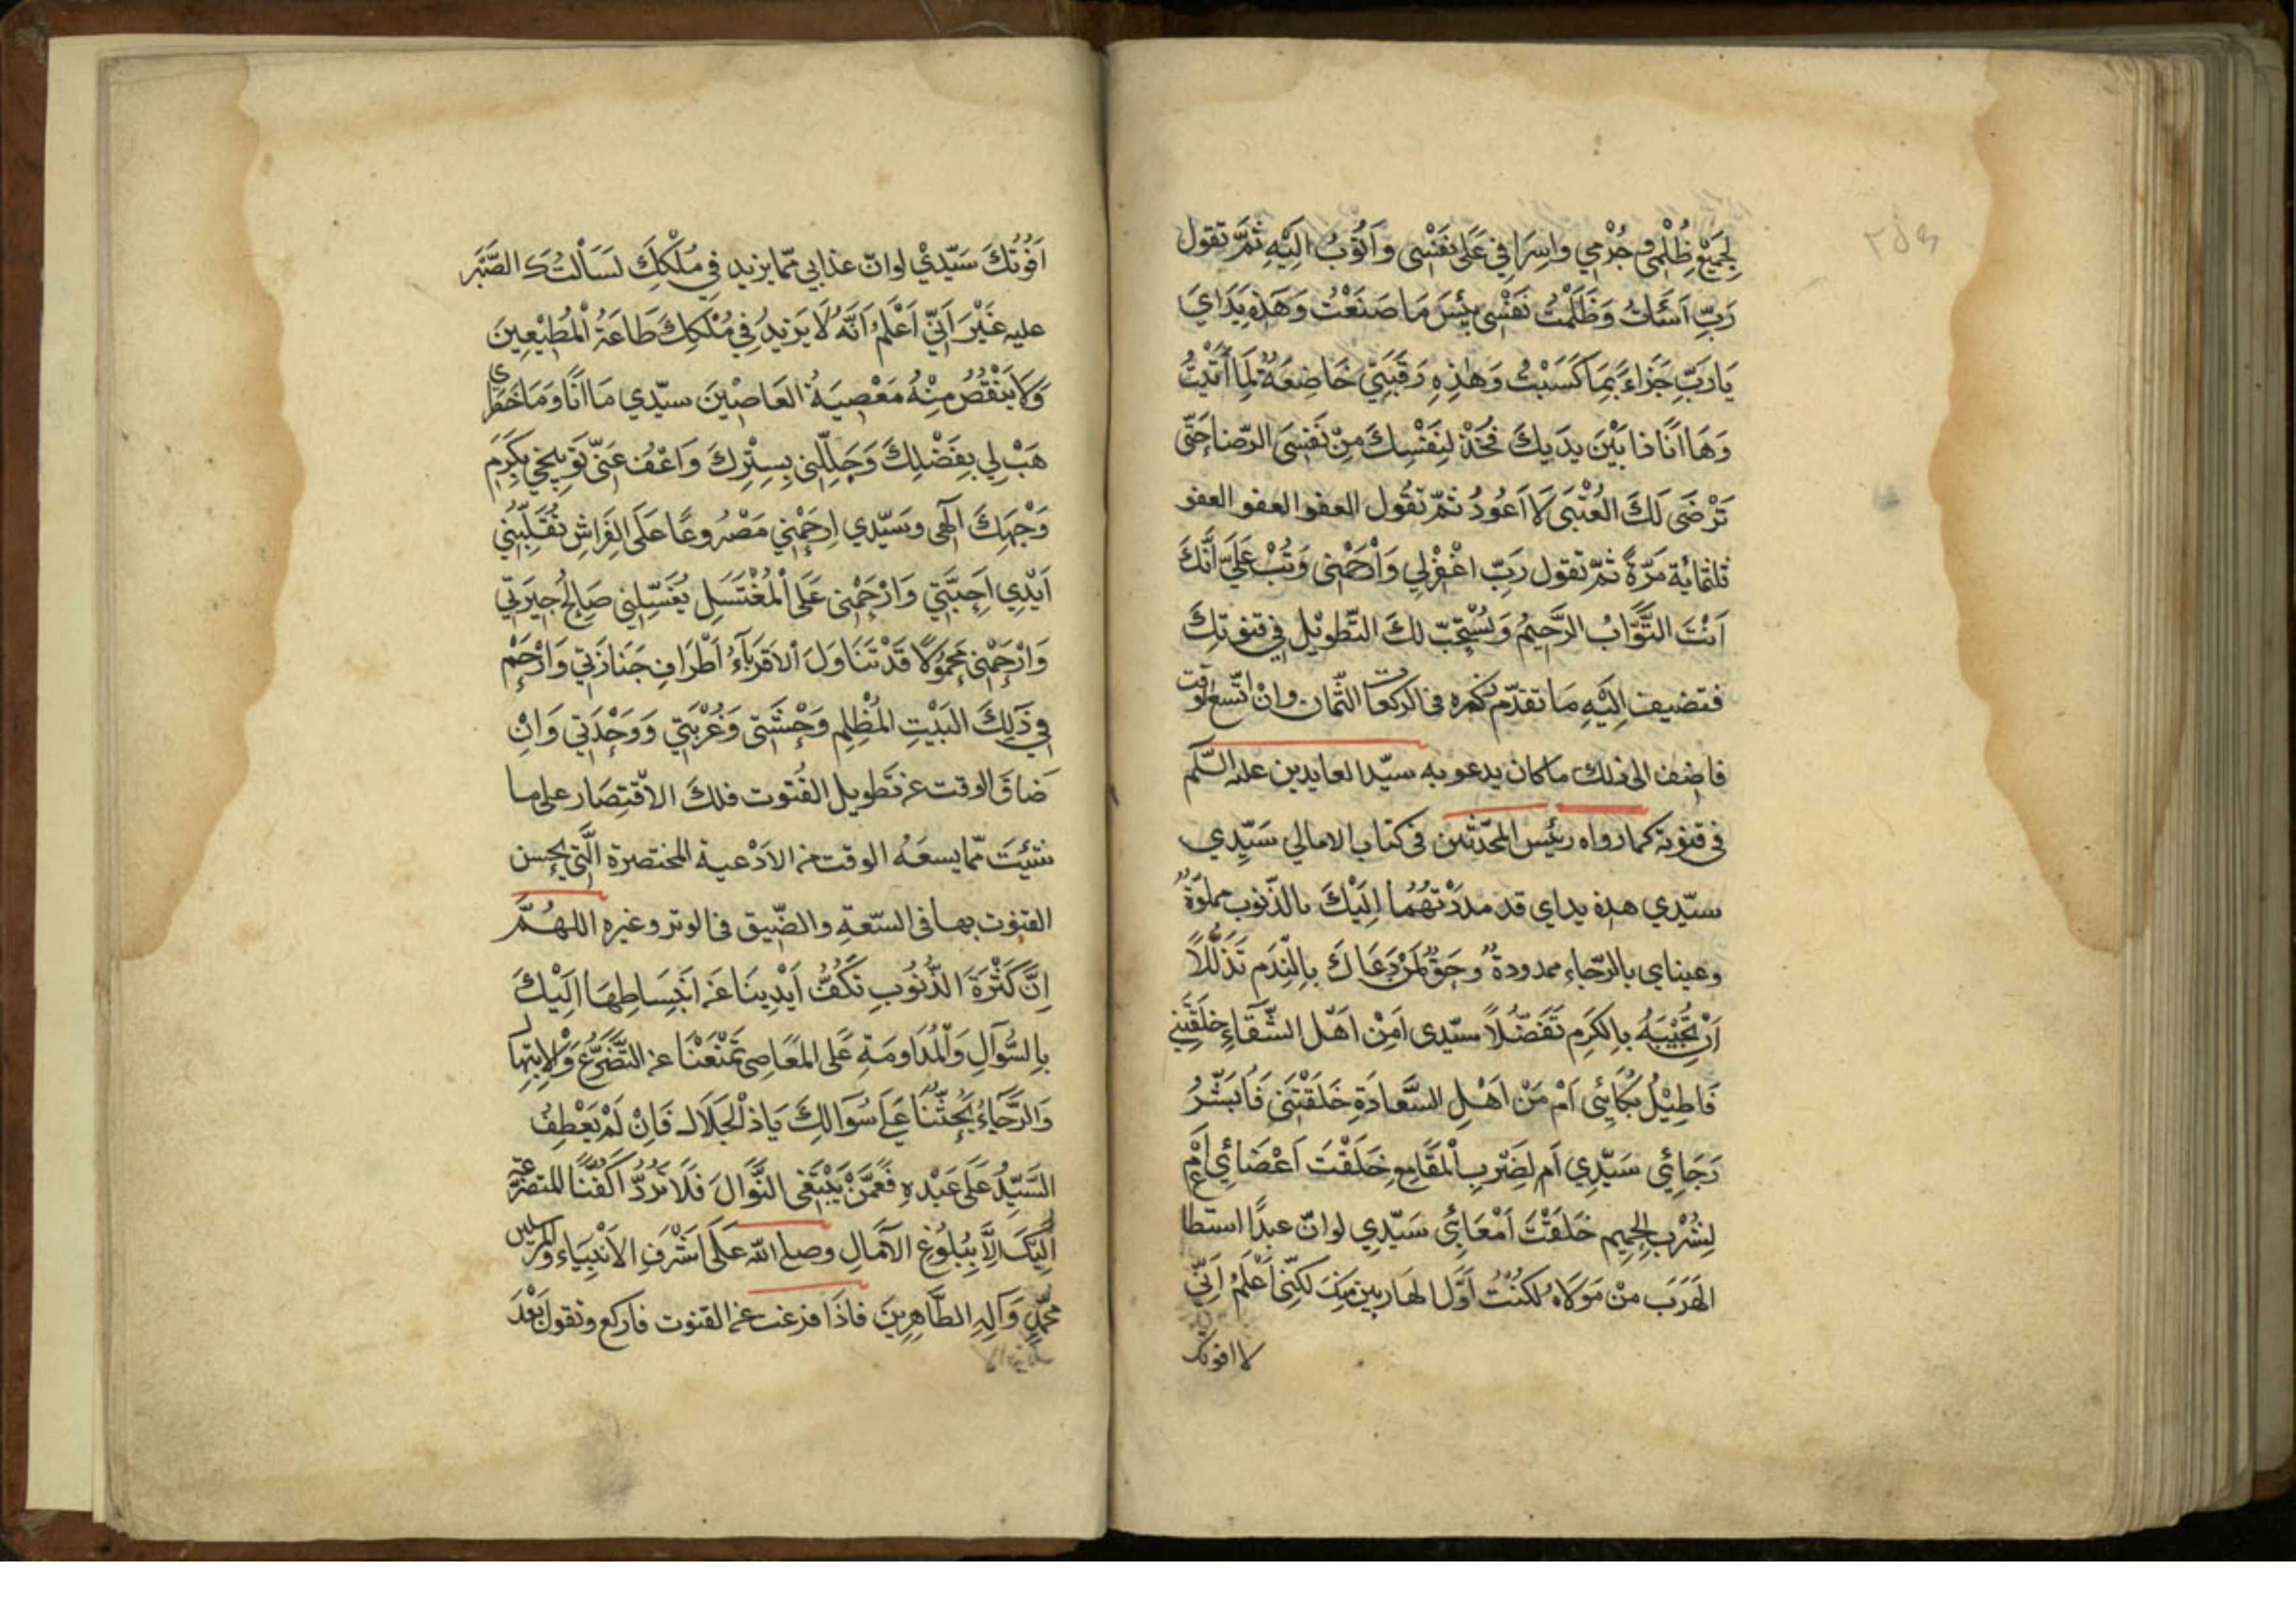 لِجَمِيْعِ ظُلْمِي وَ جُرْمِي وَاِسْرَافِي عَلَى نَفْسِي وَاَتُوْبُ اِلَيْهِ ثُمَّ تقول
رَبِّ اَسَأْتُ وَظَلَمْتُ نَفْسِي وَبِئْسَ مَا صَنَعْتُ وَهَذِهِ يَدَايَ
يَارَبِّ جَزَاءً بِمَا كَسَبْتُ وَهٰذِهِ رَقَبَتِي خَاضِعَةٌ لِمَا أَتَيْتُ
وَهَا اَنَا ذا بَيْنَ يَدَيكَ فَخُذْ لِنَفْسِكَ مِنْ نَفْسِيَ الرّضا حَتّى
تَرْضَى لَكَ العُتْبَى لَا اَعُودُ ثمّ تَقُول العفو العفو العفو
ثلثمائة مَرّةً ثمّ تقول رَبِّ اغْفِرْلِي وَارْحَمْنِي وَتُبْ عَلَيَّ اِنَّكَ
اَنْتَ التَّوَّابُ الرَّحِيْمُ وَيُسْتَحَبّ لكَ التّطوِيْل فِي قنوتِكَ
فتضيف اِلَيْهِ مَا تقدّم ذكره فى الركعات الثّمان وانْ اتّسع الوقت
فاضف الى ذلك ماكان يدعو به سيّد العابدين عليه السّلم
فى قنوته كما رواه رئيس المحدّثين فى كتاب الامالي سَيِّدِي
سيّدي هذه يداي قد مددْتُهُمَا اِلَيْكَ بالذّنوب مملوّةٌ
وعيناي بالرّجاء ممدودةٌ وحَقٌّ لِمَنْ دَعَاكَ بِالنَّدَمِ تَذَلُّلًا
اَنْ تُجِيْبَهُ بِالكَرَمِ تَفَضّلًا سيّدى اَمِنْ اَهْل الشَّقَاءِ خَلَقْتَنِي
فَاُطِيْلُ بُكَائِي اَمْ مِنْ اَهْلِ السَّعَادَةِ خَلَقْتَنِى فَاُبَشِّرُ
رَجَائِي سَيِّدِي اَم لِضَرْبِ الْمَقَامِعِ خَلَقْتَ اَعْضَائِي اَمْ
لِشُرْبِ الحَمِيمِ خَلَقْتَ اَمْعَائِي سَيّدِي لو انّ عبدًا استطا
الهَرَبَ مِنْ مَوْلَاهُ لَكُنْتُ اَوَّلَ الهَارِبِينَ مِنْكَ لكِنّي اَعْلَمُ اَنِّي
لا افوتك
اَفُوْتُكَ سَيّدِيْ لو انّ عذابي ممّا يزيد فِي مُلْكِكَ لسَأَلْتُكَ الصَّبْرَ
عليه غَيْرَ اَنِّي اَعْلَمُ اَنَّهُ لَا يَزِيدُ فِي مُلْكِكَ طَاعَةُ الْمُطِيْعِينَ
وَلَا يَنْقُصُ مِنْهُ مَعْصِيَةُ العَاصِيْنَ سيّدِي مَا اَنَا وَمَا خَطَرِي
هَبْ لِي بِفَضْلِكَ وَجَلِّلْنِي بِسِتْرِكَ وَاعْفُ عَنْ تَوْبِيخِي بِكَرَمِ
وَجْهِكَ اِلٰهِى وسَيّدِي اِرحَمْنِي مَصْرُوعًا عَلَى الفِرَاشِ تُقَلِّبُنِي
اَيْدِي اَحِبَّتِي وَارْحَمْنِي عَلَى الْمُغْتَسَلِ يُغَسِّلُنِي صَالِحُ جِيرَتِي
وَارْحَمْنِي مَحْمُولًا قَدْ تَنَاوَلَ الْاَقْرِبَآءُ اَطْرَافِ جَنَازَتِي وَارْحَمْ
فِي ذَلِكَ البَيْتِ المُظْلِمِ وَحْشَتِي وَغُرْبَتِي وَوَحْدَتِي وَانِ
ضَاقَ الوقت عن تَطويل القُنوت فلكَ الْاقْتِصَار على ما
شِئْتَ ممّا يسعَهُ الوقت من الاَدْعية المختصرة الَّتِي يحسن
القنوت بها فى السّعة والضّيق فى الوتر وغيره اللهُمَّ
اِنَّ كَثْرَةَ الذُّنُوبِ تَكُفُّ اَيْدِينَا عَن اِنْبِسَاطِهَا اِلَيْكَ
بِالسُّؤَالِ وَالْمُدَاومَةِ عَلَى المَعَاصِي تَمْنَعُنَا عن التَّضَرُّعِ وَالْاِبتِهَال
وَالرَّجَاءُ يَحُثُّنَا عَلَى سُؤَالِكَ يَاذَا الْجَلَالِ فَاِنْ لَمْ يَعْطِفْ
السَّيِّدُ عَلَى عَبْدِهِ فَمِمَّنْ يَبْتَغِى النَّوَالَ فَلَا تَرُدَّ اَكُفَّنَا المتضرّعة
اِلَيْكَ اِلَّا بِبُلُوْغِ الآمَالِ وصلى اللّه عَلَى اَشْرَفِ الاَنْبِيَاءِ والمرسلين
محمّدٍ وَآلِهِ الطَّاهِرِينَ فاذَا فرغت من القنوت فاركع وتقول بَعْدَ